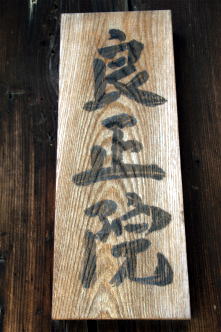 良正院